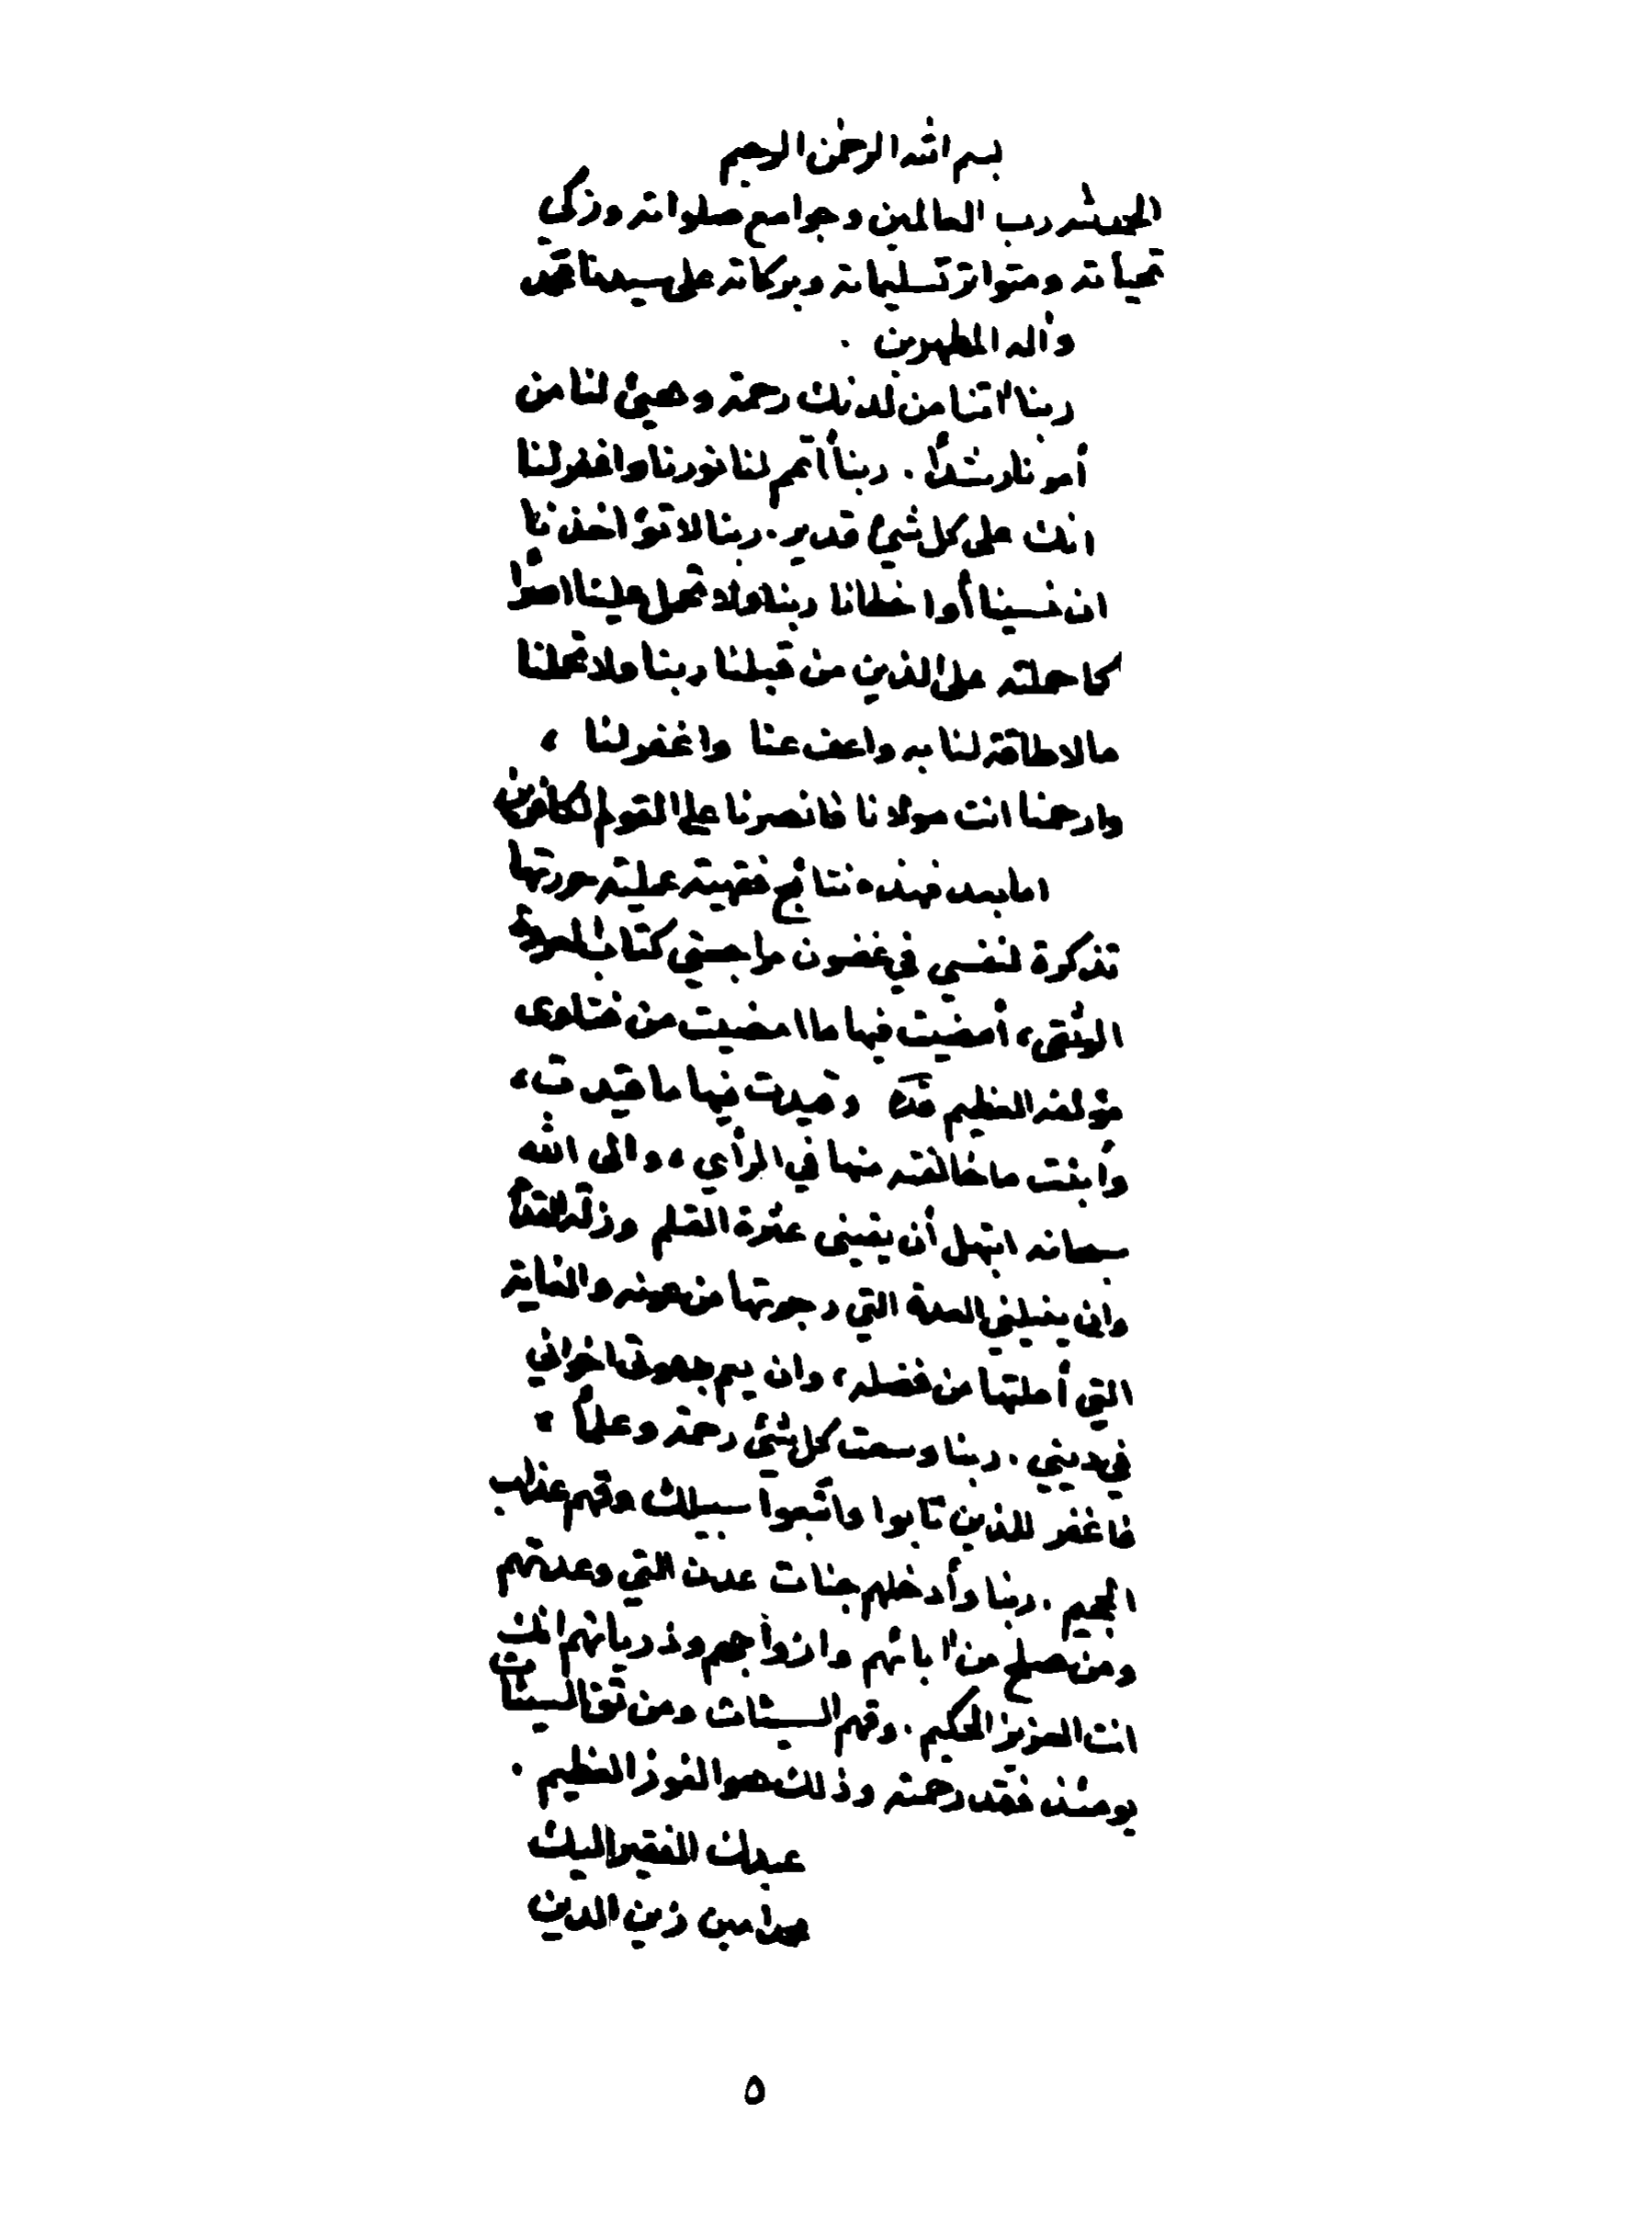 بسم الله الرحمن الرحيم
الحمد لله رب العالمين وجوامع صلواته وزكي
تحياته ومتواتر تسليماته وبركاته على سيدنا محمد
وآله المطهرين .
ربنا آتنا من لدنك رحمة وهيئ لنا من
أمرنا رشدا . ربنا أتمم لنا نورنا واغفر لنا
انك على كل شيء قدير . ربنا لا تؤاخذنا
ان نسينا أو اخطانا ربنا ولا تحمل علينا اصرًا
كما حملته على الذين من قبلنا ربنا ولا تحملنا
ما لا طاقة لنا به واعف عنا واغفر لنا ،
وارحمنا انت مولانا فانصرنا على القوم الكافرين
اما بعد فهذه نتائج فقهية عملية حررتها
تذكرة لنفسي في غضون مراجعتي كتاب العروة
الوثقى، أمضيت فيها ما امضيت من فتاوى
مؤلفه العظيم قده وقيدت فيها ما قيدت ،
وأبنت ما خالفته منها في الرأي ، والى الله
سبحانه ابتهل أن يقيني عثرة القلم وزلة القدم
وان ينيلني العدة التي رجوتها من عونه والغاية
التي أملتها من فضله ، وان يعم بجدواها اخواني
في ديني . ربنا وسعت كل شيء رحمة وعلمًا ،
فاغفر للذين تابوا واتّبعوا سبيلك وقهم عذاب
الجحيم . ربنا وأدخلهم جنات عدن التي وعدتهم
ومن صلح من آبائهم وازواجهم وذرياتهم انك
انت العزيز الحكيم . وقهم السيئات ومن تق السيئات
يومئذ فقد رحمته وذلك هو الفوز العظيم .
عبدك الفقير اليك
محمد امين زين الدين
٥